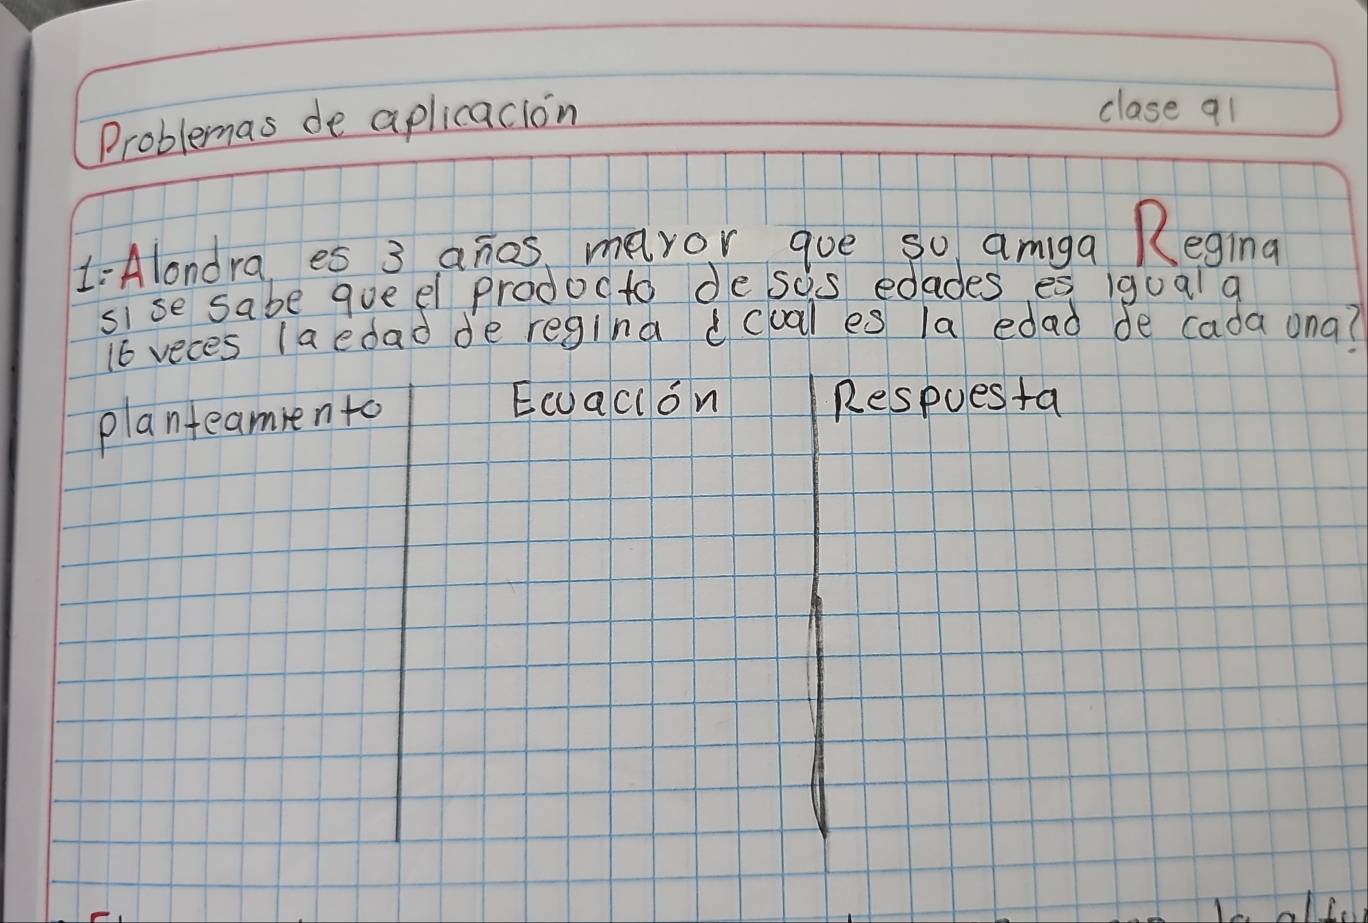 Problemas de aplicación
clase 91
1.- Alondra es 3 años mayor que su amiga Regina
si se sabe que el producto de sus edades es igual a
16 veces la edad de regina ¿cual es la edad de cada una?
planteamiento
Ecuación
Respuesta